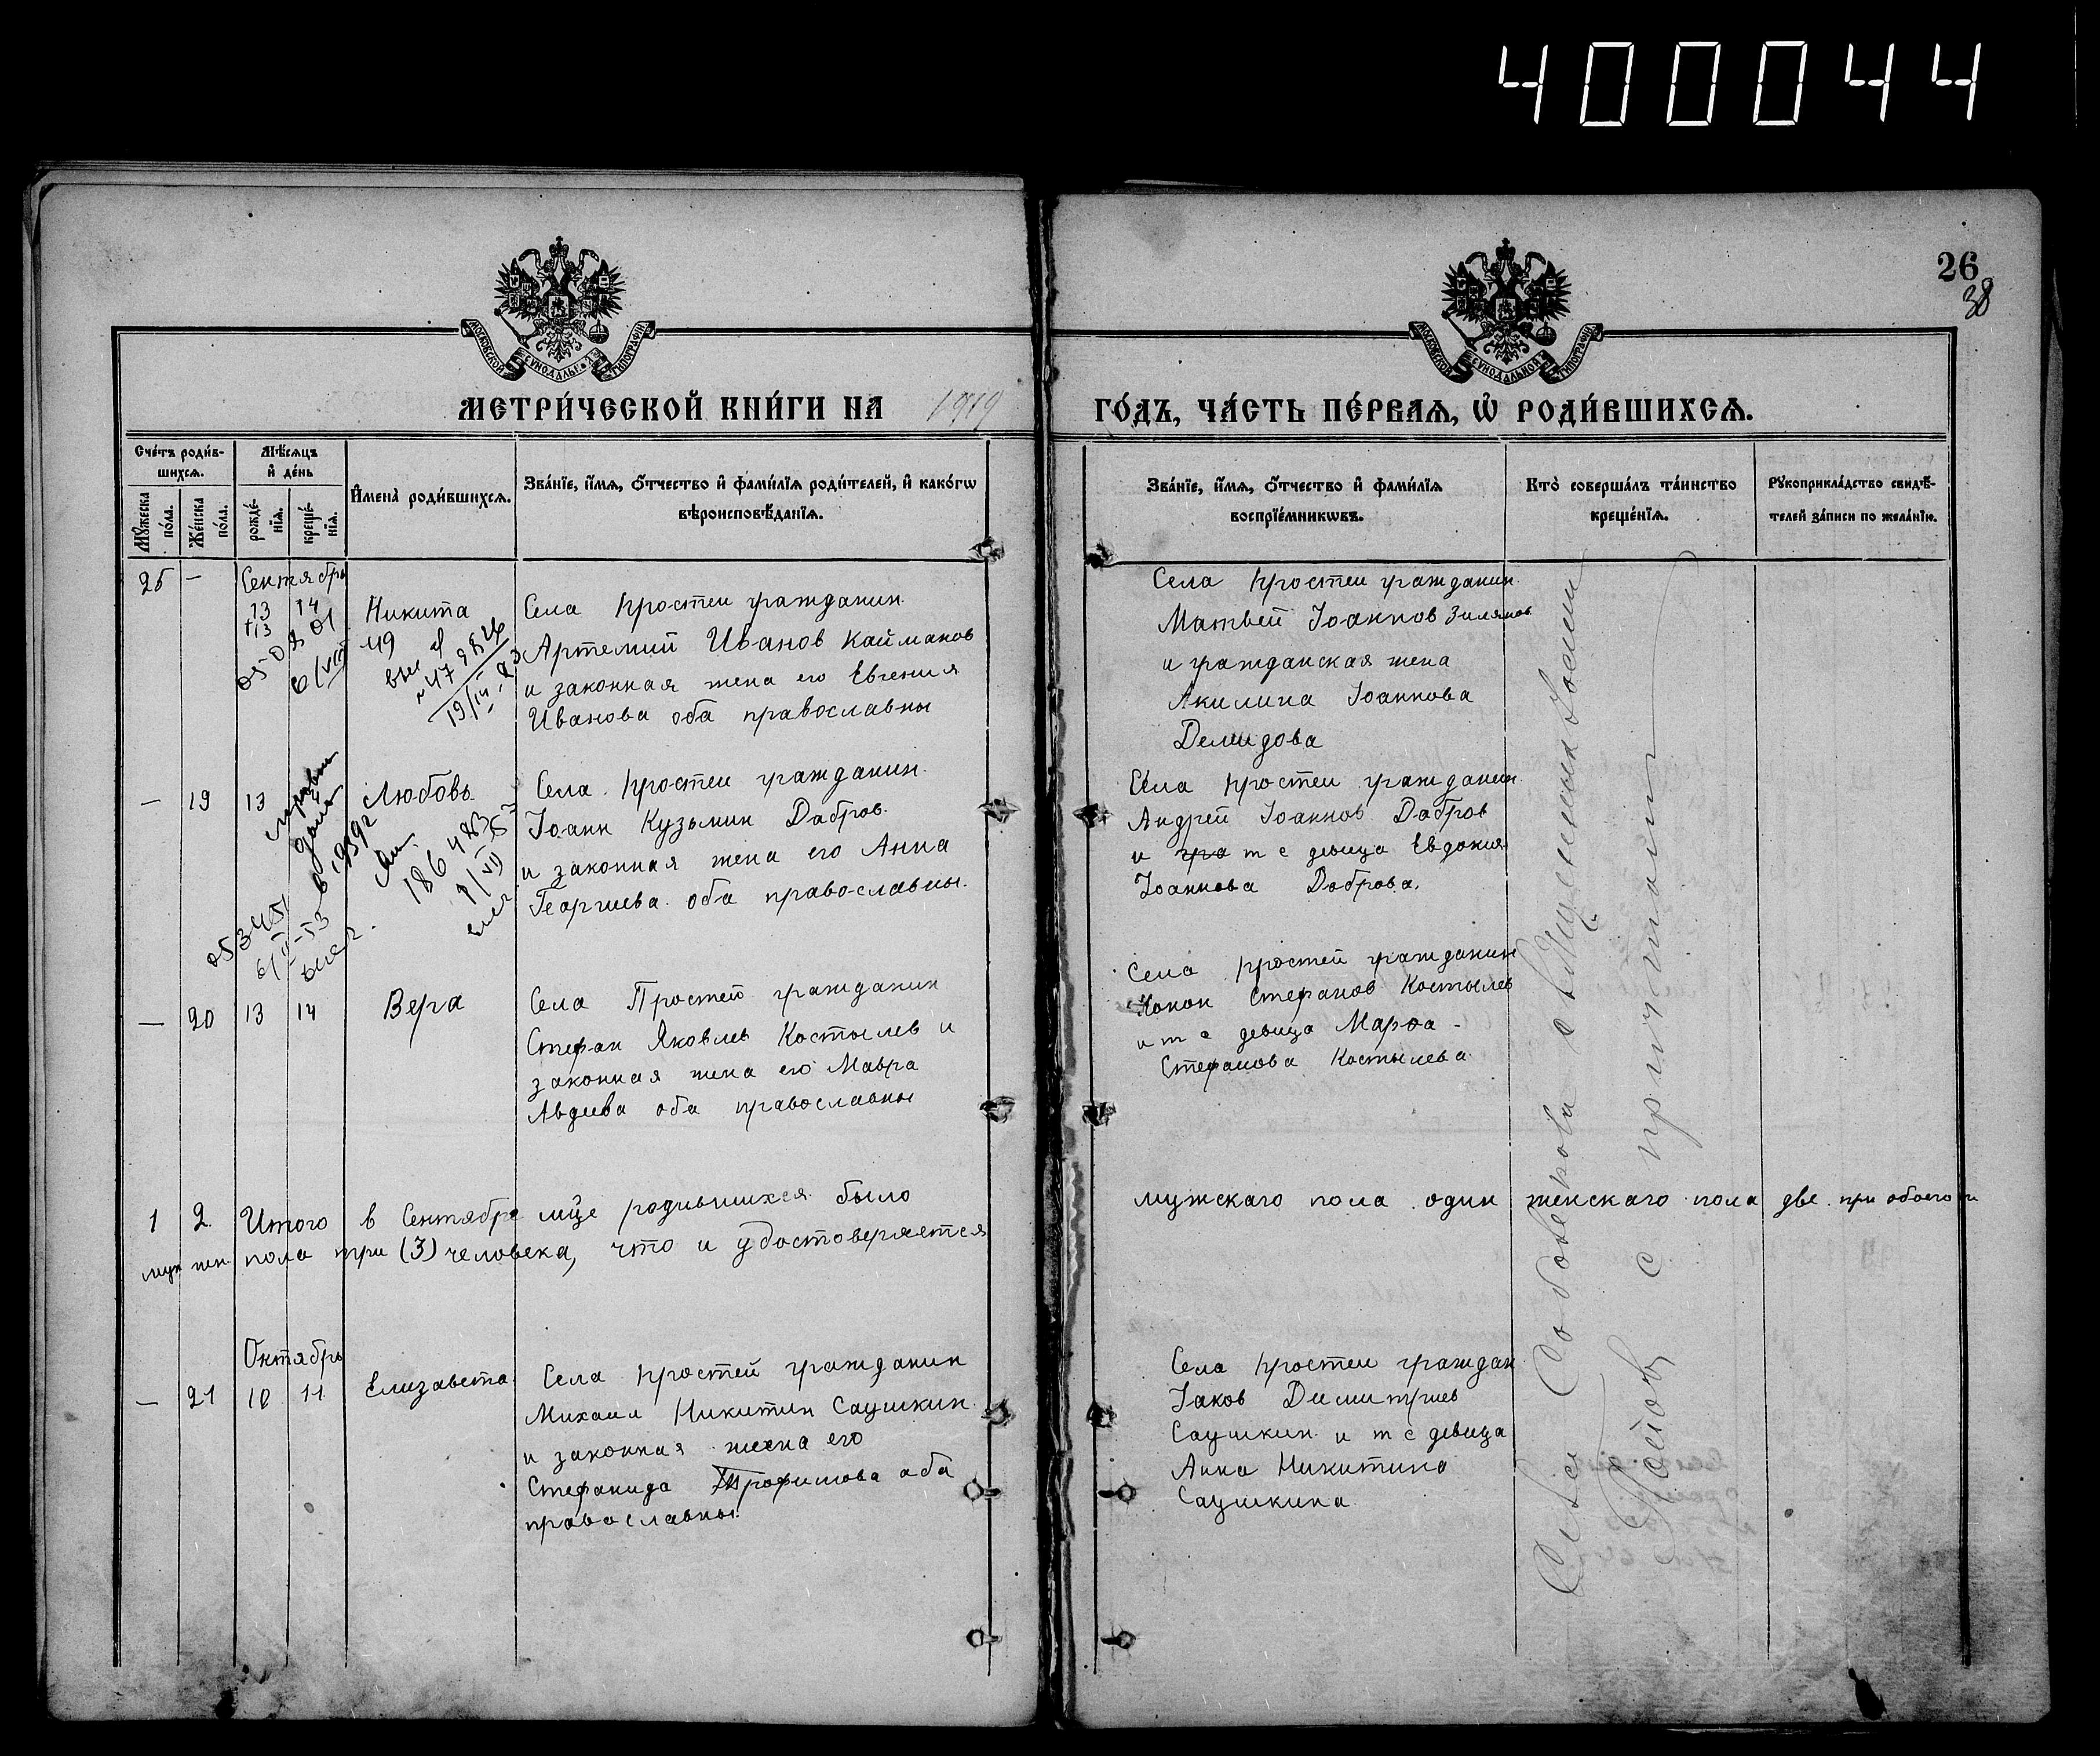 400044
26
38
МОСКОВСКОЙ СѴНОДАЛЬНОЙ ТИПОГРАФІИ
МОСКОВСКОЙ СѴНОДАЛЬНОЙ ТИПОГРАФІИ
МЕТРИ́ЧЕСКОЙ КНИ́ГИ НА 1919 ГО́ДЪ, ЧА́СТЬ ПЕ́РВАѦ, Ѡ҆ РОДИ́ВШИХСѦ.
Сче́тъ роди́в-
шихсѧ.
Мꙋ́жеска по́ла.
Же́нска по́ла.
Мѣ́сѧцъ
и҆ де́нь
рожде́-
нїѧ.
креще́-
нїѧ.
И҆мена̀ роди́вшихсѧ.
Зва́нїе, и҆́мѧ, ѻ҆́тчество и҆ фами́лїѧ роди́телей, и҆ како́гѡ
вѣроисповѣ́данїѧ.
Зва́нїе, и҆́мѧ, ѻ҆́тчество и҆ фами́лїѧ
воспрїе́мникѡвъ.
Кто̀ соверша́лъ та́инство
креще́нїѧ.
Рꙋкоприкла́дство свидѣ́-
телей за́писи по жела́нїю.
25 - Сентябрь
13 14
+13
Никита
Села Простеи гражданин
Артемий Иванов Кайманов
и законная жена его Евгения
Иванова оба православны
Села Простеи гражданин
Матвей Іоаннов Зиляков
и гражданская жена
Акилина Іоаннова
Демидова
6/VIII
49
19/III-
— 19 13
Любовь
Села Простеи гражданин
Іоанн Кузьмин Добров
и законная жена его Анна
Георгиева оба православны.
Села Простеи гражданин
Андрей Іоаннов Добров
и гра т с девица Евдокия
Іоаннова Доброва.
в 1939 г
186483
9/VII
— 20 13 14 Вера
Села Простеи гражданин
Стефан Яковлев Костылев и
законная жена его Мавра
Авдиева оба православны
Села Простей гражданин
Конон Стефанов Костылев
и т с девица Марфа -
Стефанова Костылева
1 2 Итого в Сентябре мце родившихся было мужскаго пола один женскаго пола две при обоего
муж жен пола три (3) человека, что и удостоверяется
Октябрь
— 21 10 11 Елизавета
Села Простей гражданин
Михаил Никитин Саушкин
и законная жена его
Стефанида Трофимова оба
православны
Села Простеи граждан
Іаков Димитриев
Саушкин и т с девица
Анна Никитина
Саушкина
с причтомъ